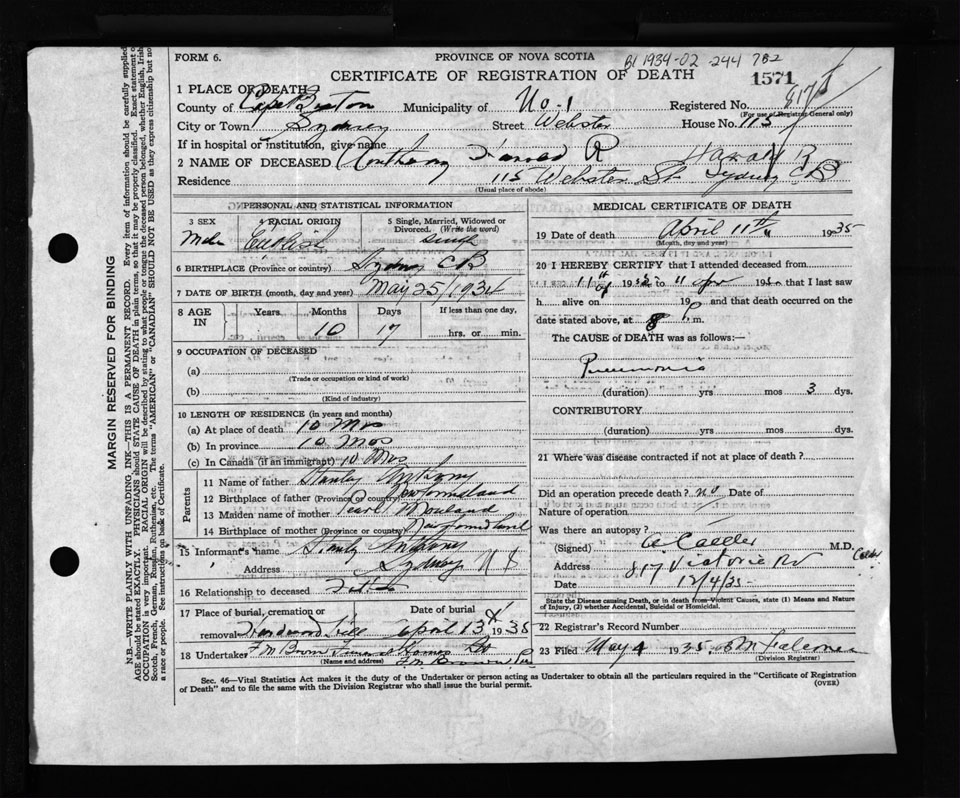 FORM 6.
PROVINCE OF NOVA SCOTIA
B1 1934-02-244782
CERTIFICATE OF REGISTRATION OF DEATH
1571
1 PLACE OF DEATH
817
County of Cape Breton Municipality of No-1 Registered No.
(For use of Registrar General only)
City or Town Sydney Street Webster House No. 115
If in hospital or institution, give name
2 NAME OF DECEASED Anthony Harold R Harold R
Residence 115 Webster St. Sydney CB
(Usual place of abode)
PERSONAL AND STATISTICAL INFORMATION
3 SEX 4 RACIAL ORIGIN 5 Single, Married, Widowed or Divorced. (Write the word)
Male English single
6 BIRTHPLACE (Province or country) Sydney CB
7 DATE OF BIRTH (month, day and year) May 25/1934
8 AGE IN Years Months Days If less than one day,
10 17 hrs. or min.
9 OCCUPATION OF DECEASED
(a)
(Trade or occupation or kind of work)
(b)
(Kind of industry)
10 LENGTH OF RESIDENCE (in years and months)
(a) At place of death 10 Mos
(b) In province 10 Mos
(c) In Canada (if an immigrant) 10 Mos
Parents
11 Name of father Stanley Anthony
12 Birthplace of father (Province or country) Newfoundland
13 Maiden name of mother Pearl Mouland
14 Birthplace of mother (Province or country) Newfoundland
15 Informant's name Stanley Anthony
Address Sydney N S
16 Relationship to deceased Father
17 Place of burial, cremation or removal Hardwood Hill Date of burial April 13th 1935
18 Undertaker F M Brown Funeral Homes
(Name and address)
F. M. Brown
MEDICAL CERTIFICATE OF DEATH
19 Date of death April 11th 1935
(Month, day and year)
20 I HEREBY CERTIFY that I attended deceased from
11 19 to 11 Apr 19 that I last saw
h alive on 19 and that death occurred on the
date stated above, at 8 P. m.
The CAUSE of DEATH was as follows:—
Pneumonia
(duration) yrs mos 3 dys.
CONTRIBUTORY
(duration) yrs mos dys.
21 Where was disease contracted if not at place of death?
Did an operation precede death? no Date of
Nature of operation
Was there an autopsy?
(Signed) A Calder M.D.
Calder
Address 817 Victoria Rd
Date 12/4/35
State the Disease causing Death, or in death from Violent Causes, state (1) Means and Nature of Injury, (2) whether Accidental, Suicidal or Homicidal.
22 Registrar's Record Number
23 Filed May 4 1935
(Division Registrar)
Sec. 46—Vital Statistics Act makes it the duty of the Undertaker or person acting as Undertaker to obtain all the particulars required in the "Certificate of Registration
of Death" and to file the same with the Division Registrar who shall issue the burial permit.
(OVER)
MARGIN RESERVED FOR BINDING
N.B.—WRITE PLAINLY WITH UNFADING INK—THIS IS A PERMANENT RECORD. Every item of information should be carefully supplied
AGE should be stated EXACTLY. PHYSICIANS should STATE CAUSE OF DEATH in plain terms, so that it may be properly classified. Exact statement of
OCCUPATION is very important. RACIAL ORIGIN will be described by stating to what people or tongue the deceased person belonged, whether English, Irish
Scotch, French, German, Russian, Ruthenian, etc. The terms "AMERICAN" or "CANADIAN" SHOULD NOT BE USED as they express citizenship but not
a race or people. See instructions on back of Certificate.